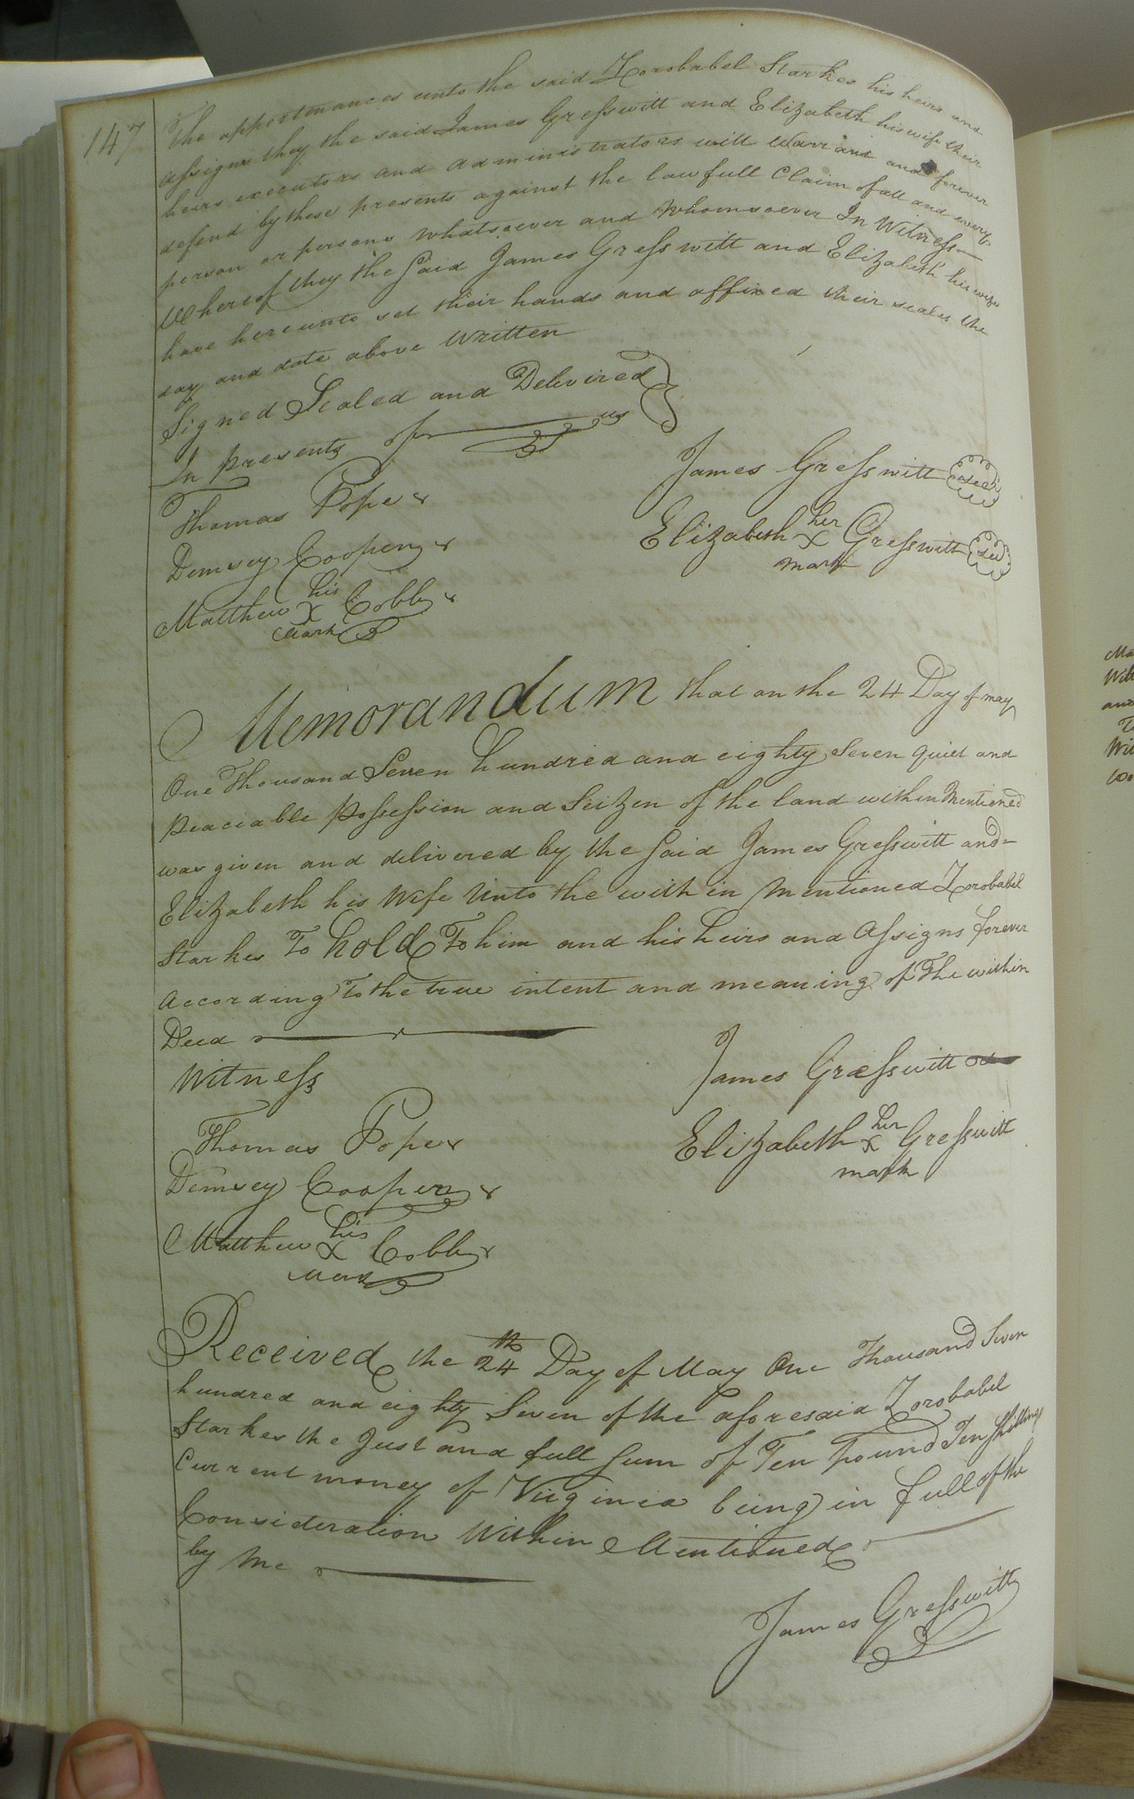 147
The appertinances unto the said Zorobabel Starkes his heirs and
assigns they the said James Gresswitt and Elizabeth his wife their
heirs executors and administrators will Warr and and forever
defend by these presents against the lawfull Claim of all and every
person or persons whatsoever and whomsoever In Witness
Whereof they the said James Gresswitt and Elizabeth his wife
have hereunto set their hands and affixed their seales the
day and date above Written
Signed Sealed and Delivired
In presents of us
James Gresswitt seal
Thomas Pope
Elizabeth her x mark Gresswitt seal
Demsey Cooper
Matthew his x mark Cobb
Memorandum that on the 24 Day of may
One Thousand Seven hundred and eighty Seven quiet and
peaciable possession and Seizen of the land within Mentioned
was given and delivered by the said James Gresswitt and
Elizabeth his Wife Unto the within Mentioned Zorobabel
Starkes To hold To him and his heirs and Assigns forever
According To the true intent and meaning of The within
Deed
Witness
James Gresswitt
Thomas Pope
Elizabeth her x mark Gresswitt
Demsey Cooper
Matthew his x mark Cobb
Received the 24th Day of May One Thousand Seven
hundred and eighty Seven of the aforesaid Zorobabel
Starkes the Just and full Sum of Ten Pound Ten Shillings
Current money of Virginia being in full of the
Consideration Within Mentioned
by Me
James Gresswitt